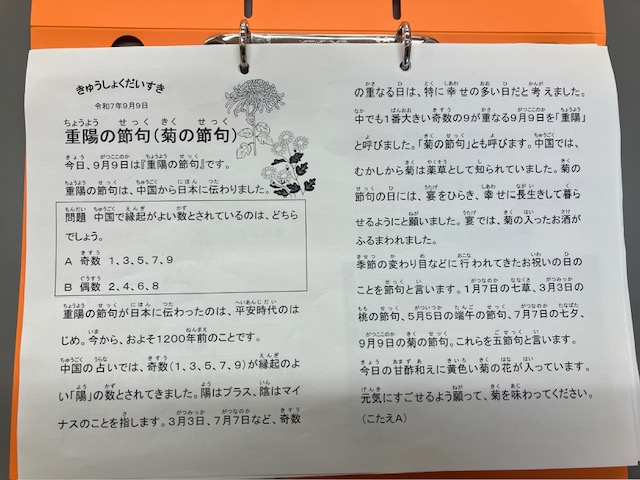 きゅうしょくだいすき
令和7年9月9日
重陽の節句(菊の節句)
今日、9月9日は『重陽の節句』です。
重陽の節句は、中国から日本に伝わりました。
問題 中国で縁起がよい数とされているのは、どちら
でしょう。
A 奇数 1、3、5、7、9
B 偶数 2、4、6、8
重陽の節句が日本に伝わったのは、平安時代のは
じめ。今から、およそ1200年前のことです。
中国の占いでは、奇数(1、3、5、7、9)が縁起のよ
い「陽」の数とされてきました。陽はプラス、陰はマイ
ナスのことを指します。3月3日、7月7日など、奇数
の重なる日は、特に幸せの多い日だと考えました。
中でも1番大きい奇数の9が重なる9月9日を「重陽」
と呼びました。「菊の節句」とも呼びます。中国では、
むかしから菊は薬草として知られていました。菊の
節句の日には、宴をひらき、幸せに長生きして暮ら
せるようにと願いました。宴では、菊の入ったお酒が
ふるまわれました。
季節の変わり目などに行われてきたお祝いの日の
ことを節句と言います。1月7日の七草、3月3日の
桃の節句、5月5日の端午の節句、7月7日の七夕、
9月9日の菊の節句。これらを五節句と言います。
今日の甘酢和えに黄色い菊の花が入っています。
元気にすごせるよう願って、菊を味わってください。
(こたえA)